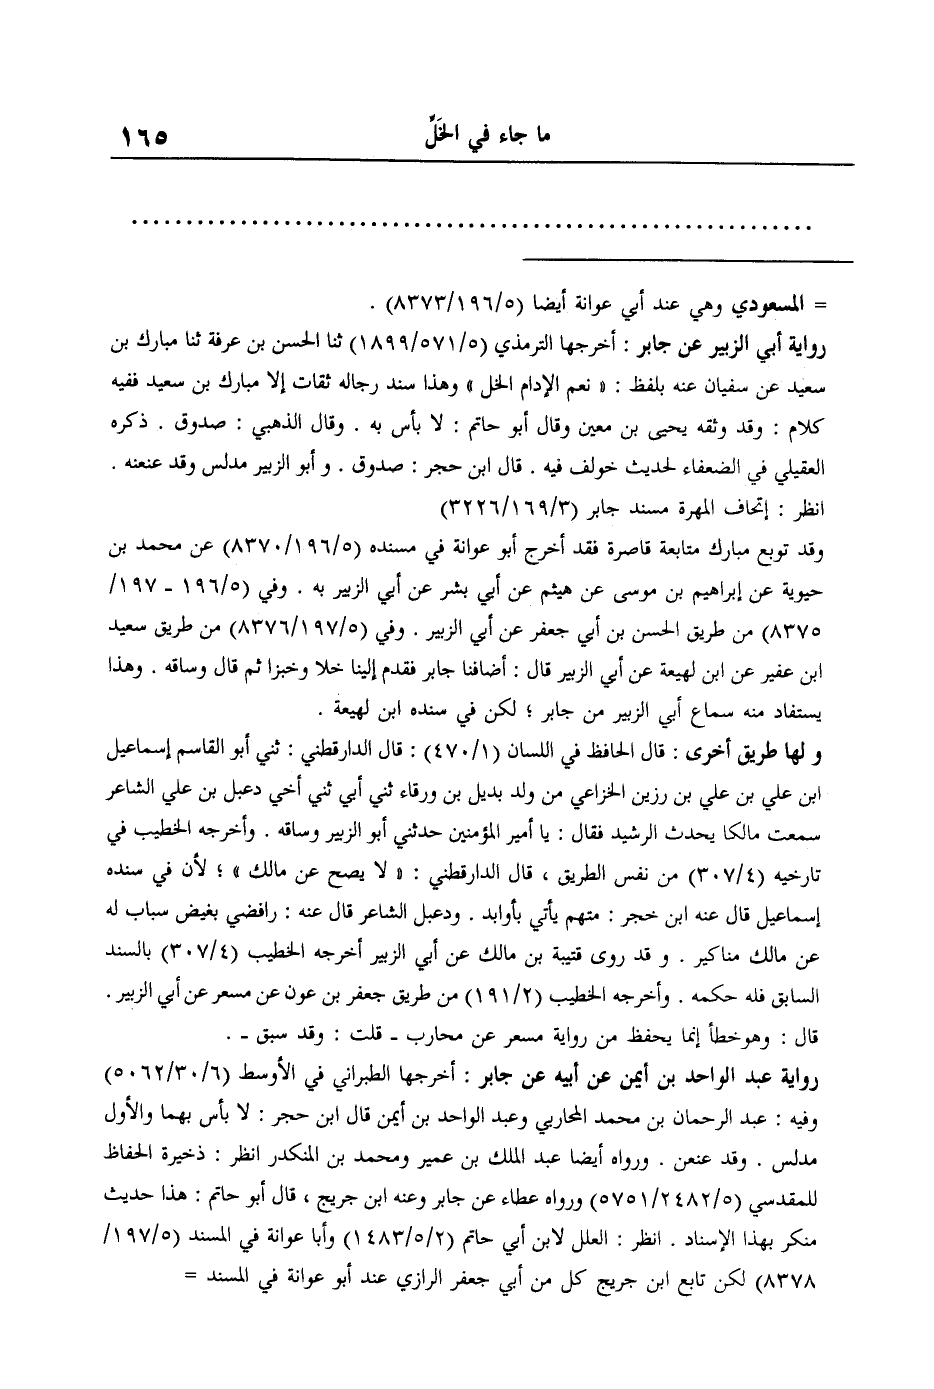 ما جاء في الخَلِّ ١٦٥
............................................................
= المسعودي وهي عند أبي عوانة أيضا (٨٣٧٣/١٩٦/٥) .
رواية أبي الزبير عن جابر : أخرجها الترمذي (١٨٩٩/٥٧١/٥) ثنا الحسن بن عرفة ثنا مبارك بن
سعيد عن سفيان عنه بلفظ : « نعم الإدام الخل » وهذا سند رجاله ثقات إلا مبارك بن سعيد ففيه
كلام : وقد وثقه يحيى بن معين وقال أبو حاتم : لا بأس به . وقال الذهبي : صدوق . ذكره
العقيلي في الضعفاء لحديث خولف فيه . قال ابن حجر : صدوق . و أبو الزبير مدلس وقد عنعنه .
انظر : إتحاف المهرة مسند جابر (٣٢٢٦/١٦٩/٣)
وقد توبع مبارك متابعة قاصرة فقد أخرج أبو عوانة في مسنده (٨٣٧٠/١٩٦/٥) عن محمد بن
حيوية عن إبراهيم بن موسى عن هيثم عن أبي بشر عن أبي الزبير به . وفي (١٩٦/٥ ـ ١٩٧/
٨٣٧٥) من طريق الحسن بن أبي جعفر عن أبي الزبير . وفي (٨٣٧٦/١٩٧/٥) من طريق سعيد
ابن عفير عن ابن لهيعة عن أبي الزبير قال : أضافنا جابر فقدم إلينا خلا وخبزا ثم قال وساقه . وهذا
يستفاد منه سماع أبي الزبير من جابر ؛ لكن في سنده ابن لهيعة .
و لها طريق أخرى : قال الحافظ في اللسان (٤٧٠/١) : قال الدارقطني : ثني أبو القاسم إسماعيل
ابن علي بن علي بن رزين الخزاعي من ولد بديل بن ورقاء ثني أبي ثني أخي دعبل بن علي الشاعر
سمعت مالكا يحدث الرشيد فقال : يا أمير المؤمنين حدثني أبو الزبير وساقه . وأخرجه الخطيب في
تارخيه (٣٠٧/٤) من نفس الطريق ، قال الدارقطني : « لا يصح عن مالك » ؛ لأن في سنده
إسماعيل قال عنه ابن حجر : متهم يأتي بأوابد . ودعبل الشاعر قال عنه : رافضي بغيض سباب له
عن مالك مناكير . و قد روى قتيبة بن مالك عن أبي الزبير أخرجه الخطيب (٣٠٧/٤) بالسند
السابق فله حكمه . وأخرجه الخطيب (١٩١/٢) من طريق جعفر بن عون عن مسعر عن أبي الزبير .
قال : وهوخطأ إنما يحفظ من رواية مسعر عن محارب ـ قلت : وقد سبق ـ .
رواية عبد الواحد بن أيمن عن أبيه عن جابر : أخرجها الطبراني في الأوسط (٥٠٦٢/٣٠/٦)
وفيه : عبد الرحمان بن محمد المحاربي وعبد الواحد بن أيمن قال ابن حجر : لا بأس بهما والأول
مدلس . وقد عنعن . ورواه أيضا عبد الملك بن عمير ومحمد بن المنكدر انظر : ذخيرة الحفاظ
للمقدسي (٥٧٥١/٢٤٨٢/٥) ورواه عطاء عن جابر وعنه ابن جريج ، قال أبو حاتم : هذا حديث
منكر بهذا الإسناد . انظر : العلل لابن أبي حاتم (١٤٨٣/٥/٢) وأبا عوانة في المسند (١٩٧/٥/
٨٣٧٨) لكن تابع ابن جريج كل من أبي جعفر الرازي عند أبو عوانة في المسند =